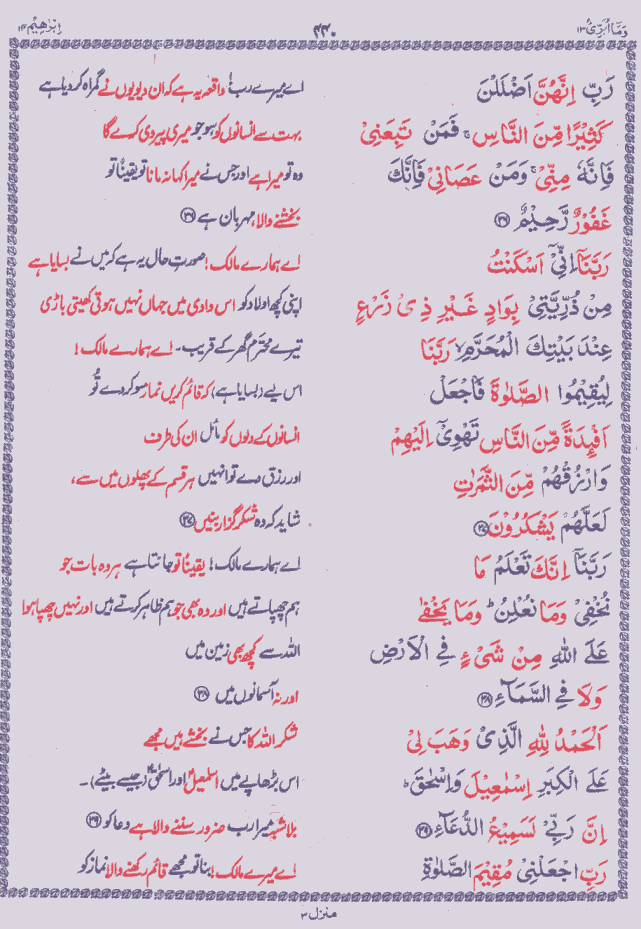 وَمَآ اُبَرِّئُ ۱۳ ۴۴۰ اِبْرٰهِيْم ۱۴
رَبِّ اِنَّهُنَّ اَضْلَلْنَ اے میرے رب! واقعہ یہ ہے کہ ان دیویوں نے گمراہ کر دیا ہے
كَثِيْرًا مِّنَ النَّاسِ ۚ فَمَنْ تَبِعَنِيْ بہت سے انسانوں کو سو جو میری پیروی کرے گا
فَاِنَّهٗ مِنِّيْ ۚ وَمَنْ عَصَانِيْ فَاِنَّكَ وہ تو میرا ہے اور جس نے میرا کہا نہ مانا تو یقیناً تو
غَفُوْرٌ رَّحِيْمٌ ﴿۳۶﴾ بخشنے والا، مہربان ہے ﴿۳۶﴾
رَبَّنَآ اِنِّيْٓ اَسْكَنْتُ اے ہمارے مالک! صورتِ حال یہ ہے کہ میں نے بسایا ہے
مِنْ ذُرِّيَّتِيْ بِوَادٍ غَيْرِ ذِيْ زَرْعٍ اپنی کچھ اولاد کو اس وادی میں جہاں نہیں ہوتی کھیتی باڑی
عِنْدَ بَيْتِكَ الْمُحَرَّمِ ۙ رَبَّنَا تیرے محترم گھر کے قریب۔ اے ہمارے مالک!
لِيُقِيْمُوا الصَّلٰوةَ فَاجْعَلْ اس لیے (بسایا ہے) کہ قائم کریں نماز سو کر دے تُو
اَفْـِٕدَةً مِّنَ النَّاسِ تَهْوِيْٓ اِلَيْهِمْ انسانوں کے دلوں کو مائل ان کی طرف
وَارْزُقْهُمْ مِّنَ الثَّمَرٰتِ اور رزق دے تو انہیں ہر قسم کے پھلوں میں سے،
لَعَلَّهُمْ يَشْكُرُوْنَ ﴿۳۷﴾ شاید کہ وہ شکر گزار بنیں ﴿۳۷﴾
رَبَّنَآ اِنَّكَ تَعْلَمُ مَا اے ہمارے مالک! یقیناً تو جانتا ہے ہر وہ بات جو
نُخْفِيْ وَمَا نُعْلِنُ ؕ وَمَا يَخْفٰى ہم چھپاتے ہیں اور وہ بھی جو ہم ظاہر کرتے ہیں اور نہیں چھپا ہوا
عَلَى اللّٰهِ مِنْ شَيْءٍ فِي الْاَرْضِ اللہ سے کچھ بھی زمین میں
وَلَا فِي السَّمَآءِ ﴿۳۸﴾ اور نہ آسمانوں میں ﴿۳۸﴾
اَلْحَمْدُ لِلّٰهِ الَّذِيْ وَهَبَ لِيْ شکر اللہ کا جس نے بخشے ہیں مجھے
عَلَى الْكِبَرِ اِسْمٰعِيْلَ وَاِسْحٰقَ ؕ اس بڑھاپے میں اسمٰعیلؑ اور اسحٰقؑ (جیسے بیٹے)۔
اِنَّ رَبِّيْ لَسَمِيْعُ الدُّعَآءِ ﴿۳۹﴾ بلاشبہ میرا رب ضرور سننے والا ہے دعا کو ﴿۳۹﴾
رَبِّ اجْعَلْنِيْ مُقِيْمَ الصَّلٰوةِ اے میرے مالک! بنا تو مجھے قائم رکھنے والا نماز کو
منزل ۳